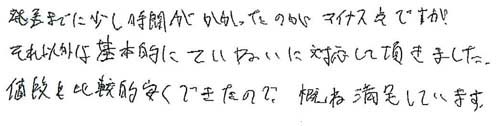 発送までに少し時間がかかったのがマイナス点ですが
それ以外は基本的にていねいに対応して頂きました。
値段も比較的安くできたので、概ね満足しています。